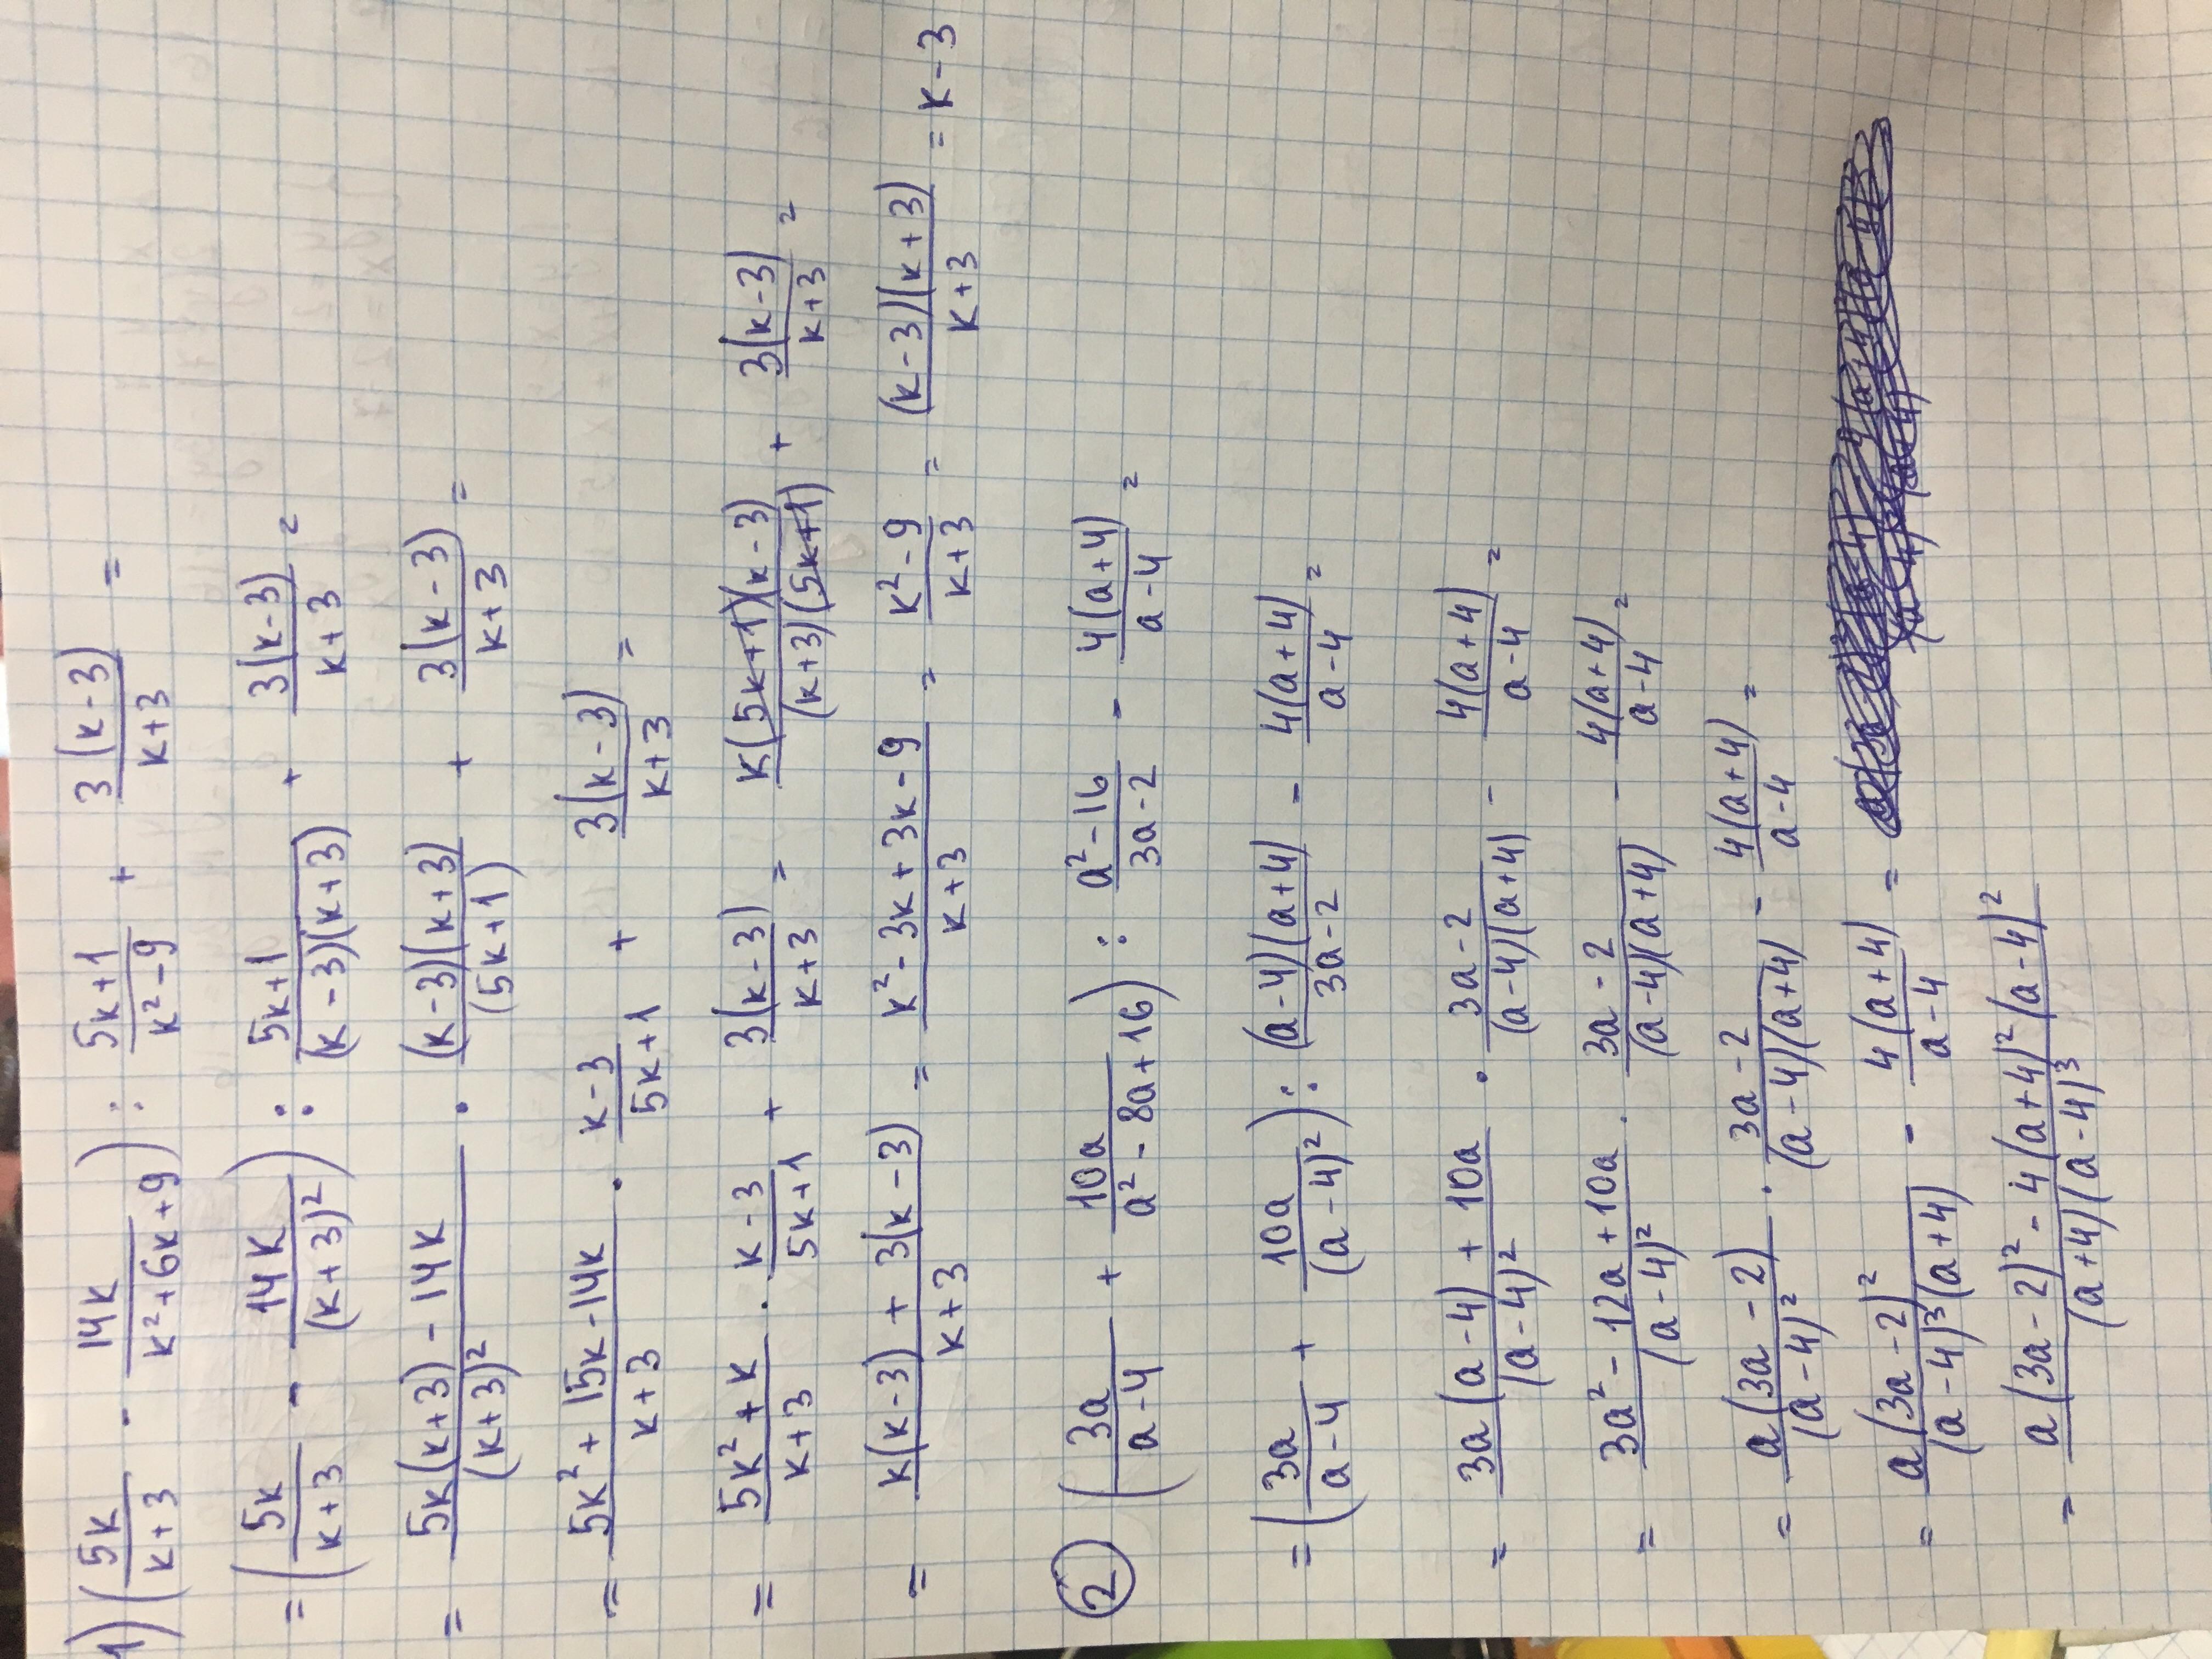 1) (5k/(k+3) - 14k/(k²+6k+9)) : (5k+1)/(k²-9) + 3(k-3)/(k+3) =
= (5k/(k+3) - 14k/(k+3)²) : (5k+1)/((k-3)(k+3)) + 3(k-3)/(k+3) =
= (5k(k+3) - 14k)/(k+3)² · (k-3)(k+3)/(5k+1) + 3(k-3)/(k+3) =
= (5k² + 15k - 14k)/(k+3) · (k-3)/(5k+1) + 3(k-3)/(k+3) =
= (5k² + k)/(k+3) · (k-3)/(5k+1) + 3(k-3)/(k+3) = k(5k+1)(k-3)/((k+3)(5k+1)) + 3(k-3)/(k+3) =
= (k(k-3) + 3(k-3))/(k+3) = (k² - 3k + 3k - 9)/(k+3) = (k² - 9)/(k+3) = (k-3)(k+3)/(k+3) = k - 3
2) (3a/(a-4) + 10a/(a² - 8a + 16)) : (a² - 16)/(3a-2) - 4(a+4)/(a-4) =
= (3a/(a-4) + 10a/(a-4)²) : (a-4)(a+4)/(3a-2) - 4(a+4)/(a-4) =
= (3a(a-4) + 10a)/(a-4)² · (3a-2)/((a-4)(a+4)) - 4(a+4)/(a-4) =
= (3a² - 12a + 10a)/(a-4)² · (3a-2)/((a-4)(a+4)) - 4(a+4)/(a-4) =
= a(3a-2)/(a-4)² · (3a-2)/((a-4)(a+4)) - 4(a+4)/(a-4) =
= a(3a-2)²/((a-4)³(a+4)) - 4(a+4)/(a-4) =
= (a(3a-2)² - 4(a+4)²(a-4)²)/((a+4)(a-4)³)